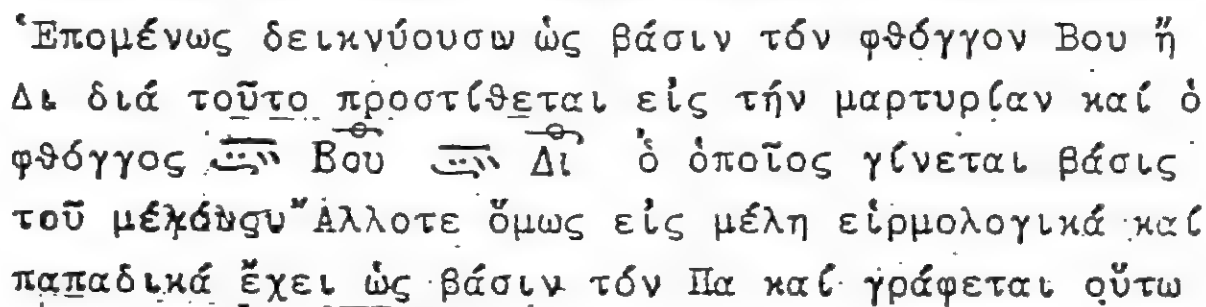 Ἑπομένως δεικνύουσιν ὡς βάσιν τόν φθόγγον Βου ἤ
Δι διά τοῦτο προστίθεται εἰς τήν μαρτυρίαν καί ὁ
φθόγγος Βου Δι ὁ ὁποῖος γίνεται βάσις
τοῦ Ἄλλοτε ὅμως εἰς μέλη εἱρμολογικά καί
παπαδικά ἔχει ὡς βάσιν τόν Πα καί γράφεται οὕτω